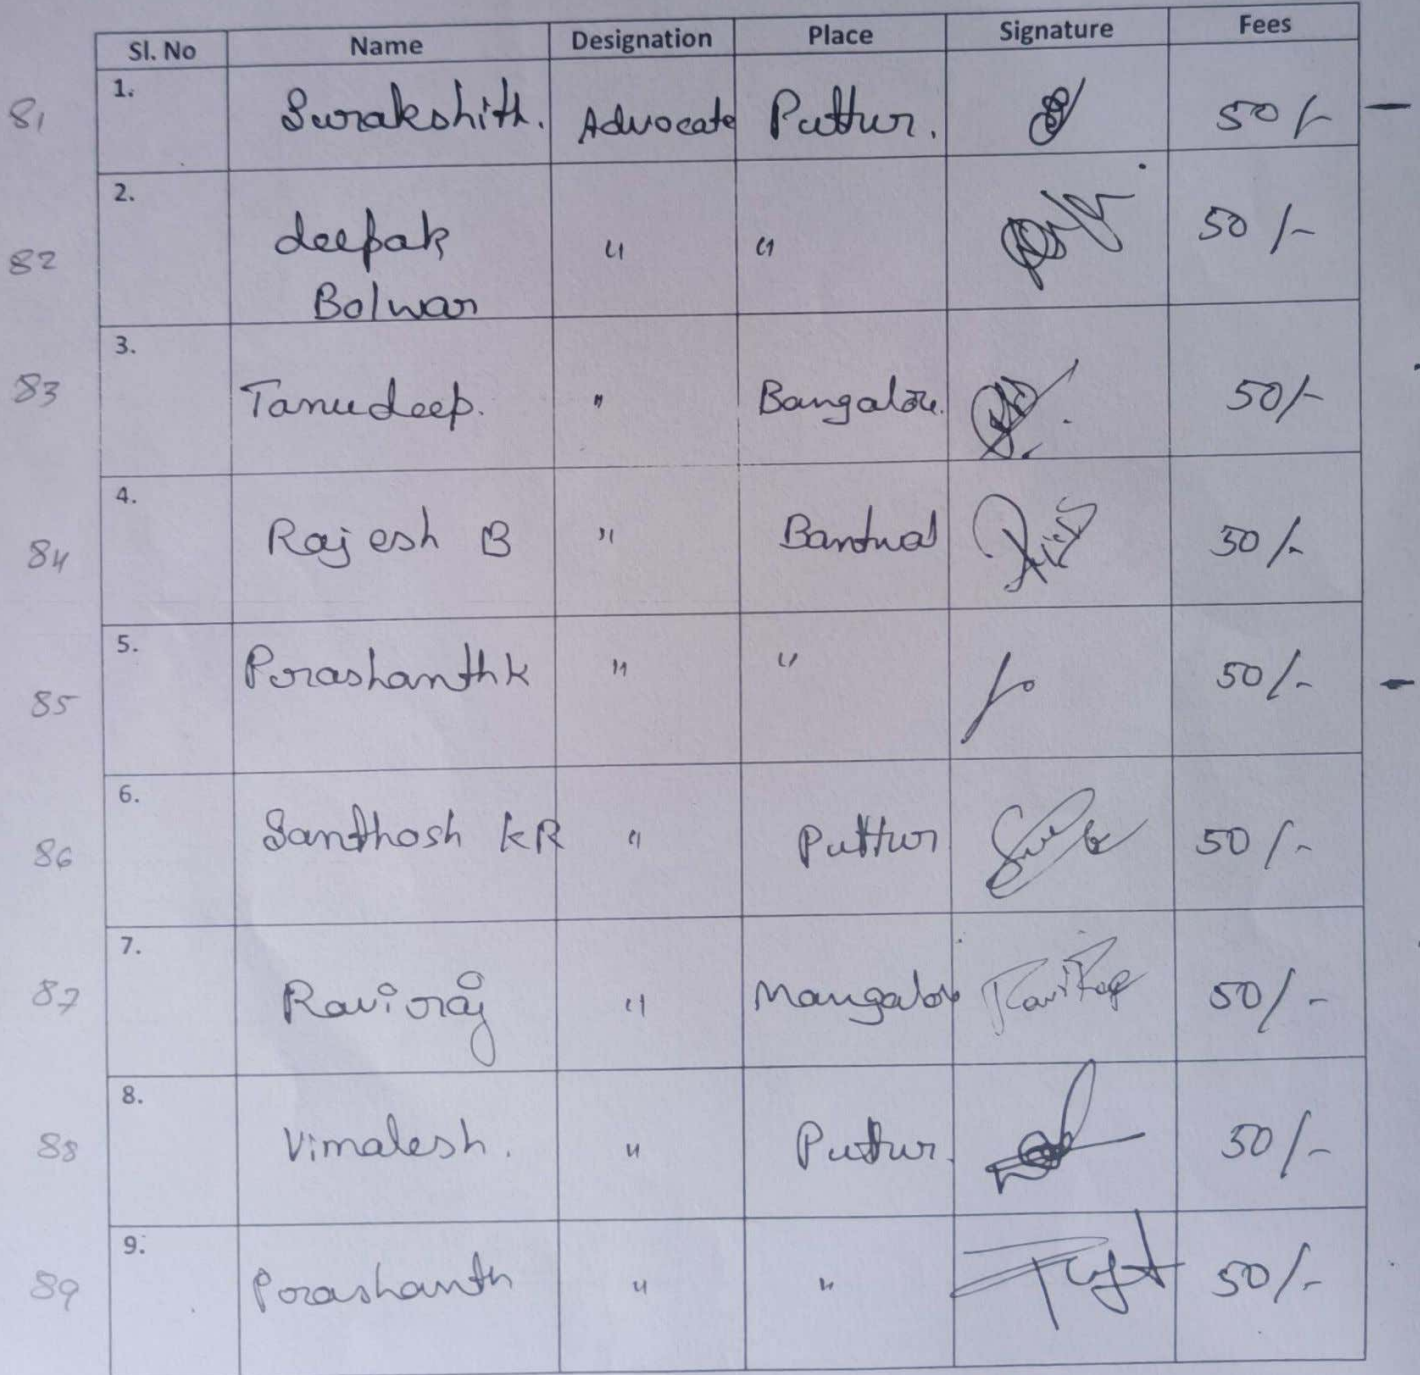 Sl. No Name Designation Place Signature Fees
81 1. Surakshith. Advocate Puttur. 50/-
82 2. deepak " " 50/-
Bolwar
83 3. Tanudeep. " Bangalore. 50/-
84 4. Rajesh B " Bantwal 50/-
85 5. Prashanth k " " 50/-
86 6. Santhosh KR " Puttur 50/-
87 7. Raviraj " Mangalore RaviRaj 50/-
88 8. Vimalesh. " Puttur. 50/-
89 9. Prashanth " " 50/-